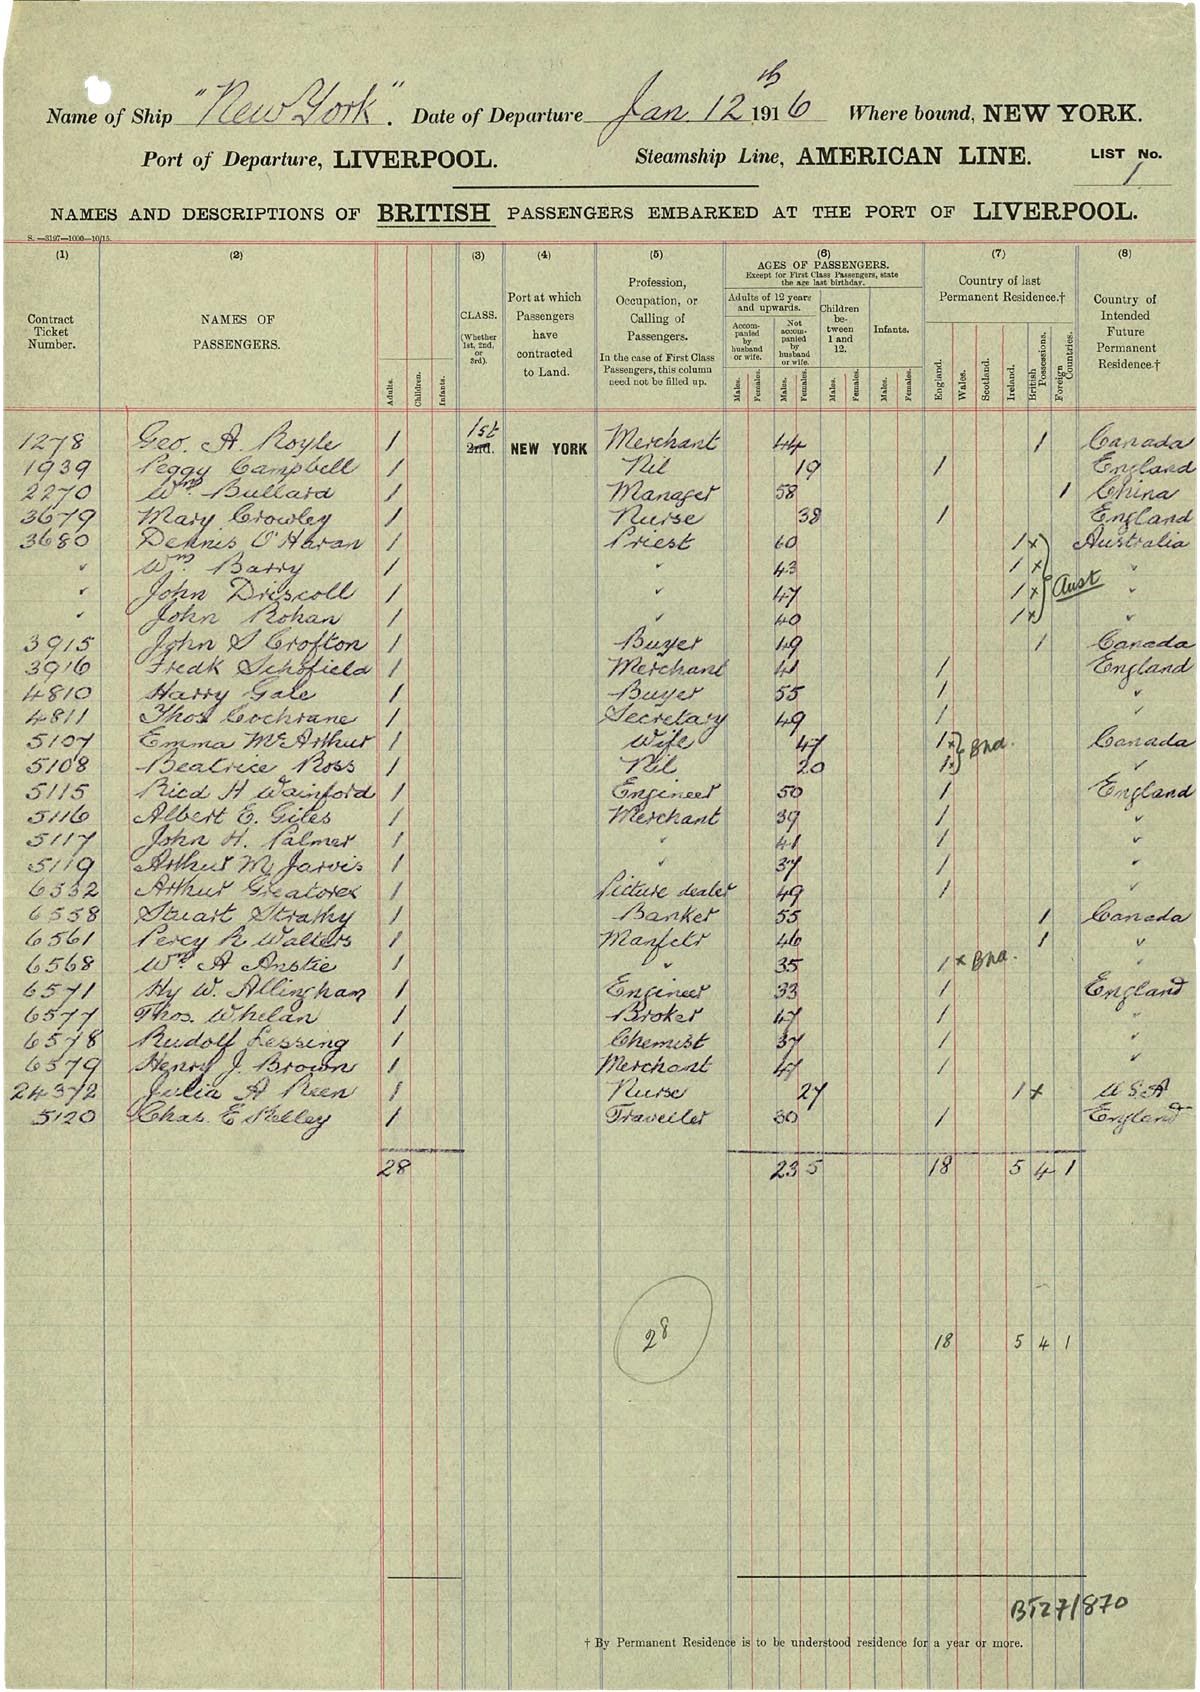 Name of Ship "New York". Date of Departure Jan. 12th 1916 Where bound, NEW YORK.
Port of Departure, LIVERPOOL. Steamship Line, AMERICAN LINE. LIST No. 1
NAMES AND DESCRIPTIONS OF BRITISH PASSENGERS EMBARKED AT THE PORT OF LIVERPOOL.
S.—3197—1000—10/15.
(1) (2) (3) (4) (5) (6) (7) (8)
Contract Ticket Number.
NAMES OF PASSENGERS.
Adults. Children. Infants.
CLASS. (Whether 1st, 2nd, or 3rd).
Port at which Passengers have contracted to Land.
Profession, Occupation, or Calling of Passengers.
In the case of First Class Passengers, this column need not be filled up.
AGES OF PASSENGERS.
Except for First Class Passengers, state the age last birthday.
Adults of 12 years and upwards.
Accompanied by husband or wife.
Not accompanied by husband or wife.
Children between 1 and 12.
Infants.
Males. Females. Males. Females. Males. Females. Males. Females.
Country of last Permanent Residence.†
England. Wales. Scotland. Ireland. British Possessions. Foreign Countries.
Country of Intended Future Permanent Residence.†
1278 Geo. A Royle 1 1st 2nd. NEW YORK Merchant 44 1 Canada
1939 Peggy Campbell 1 Nil 19 1 England
2270 Wm. Bullard 1 Manager 58 1 China
3679 Mary Crowley 1 Nurse 38 1 England
3680 Dennis O'Haran 1 Priest 60 1 x Australia
" Wm. Barry 1 " 43 1 x "
" John Driscoll 1 " 47 1 x Aust "
" John Rohan 1 " 40 1 x "
3915 John S Crofton 1 Buyer 49 1 Canada
3916 Fredk Schofield 1 Merchant 41 1 England
4810 Harry Gale 1 Buyer 55 1 "
4811 Thos Cochrane 1 Secretary 49 1 "
5107 Emma McArthur 1 Wife 47 1 x Bna. Canada
5108 Beatrice Ross 1 Nil 20 1 x "
5115 Ricd H Wainford 1 Engineer 50 1 England
5116 Albert E. Giles 1 Merchant 39 1 "
5117 John H. Palmer 1 " 41 1 "
5119 Arthur M Jarvis 1 " 37 1 "
6532 Arthur Greatorex 1 Picture dealer 49 1 "
6558 Stuart Strathy 1 Banker 55 1 Canada
6561 Percy R Walters 1 Manfctr 46 1 "
6568 Wm. A Anstie 1 " 35 1 x Bna. "
6571 Hy W. Allingham 1 Engineer 33 1 England
6577 Thos. Whelan 1 Broker 47 1 "
6578 Rudolf Lessing 1 Chemist 37 1 "
6579 Henry J. Brown 1 Merchant 47 1 "
24372 Julia A Keen 1 Nurse 27 1 x USA
5120 Chas. E Kelley 1 Traveller 30 1 England
28 23 5 18 5 4 1
28 18 5 4 1
BT27/870
† By Permanent Residence is to be understood residence for a year or more.